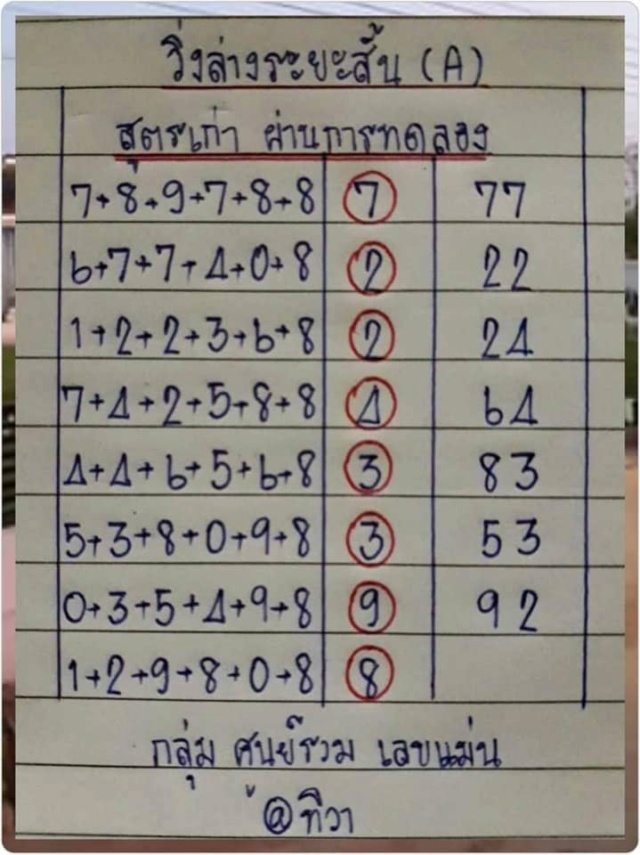 วิ่งล่างระยะสั้น (A)
สูตรเก่า ผ่านการทดลอง
7+8+9+7+8+8 7 77
6+7+7+4+0+8 2 22
1+2+2+3+6+8 2 24
7+4+2+5+8+8 4 64
4+4+6+5+6+8 3 83
5+3+8+0+9+8 3 53
0+3+5+4+9+8 9 92
1+2+9+8+0+8 8
กลุ่ม ศูนย์รวม เลขแม่น
@ทิวา